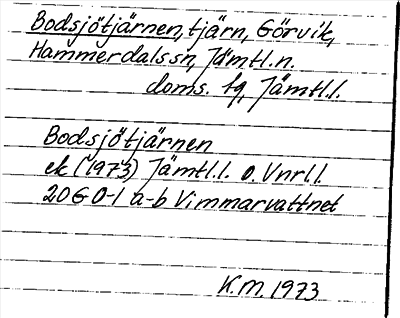 Bodsjötjärnen, tjärn, Görvik,
Hammerdals sn, Jämtl. n.
doms. fq, Jämtl.l.
Bodsjötjärnen
ek (1973) Jämtl.l. o. Vnrl l.
20G 0-1 a-b Vimmarvattnet
K.M. 1973